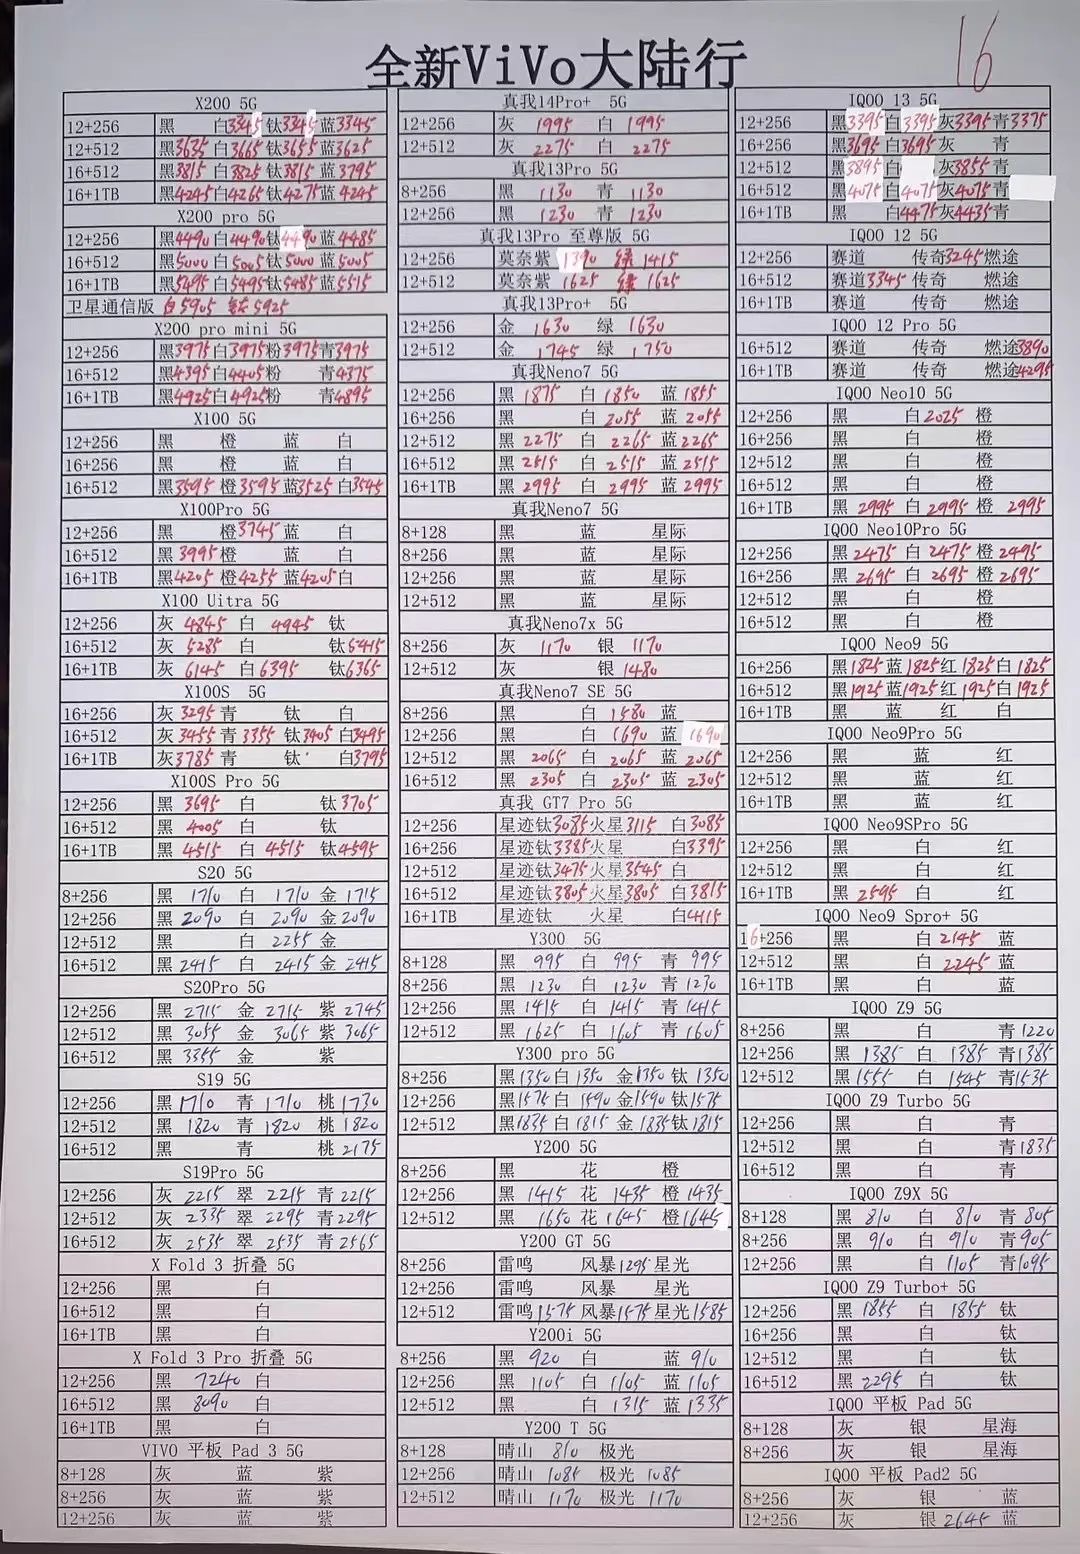 全新ViVo大陆行
16
X200 5G
12+256 黑 白3345 钛3345 蓝3345
12+512 黑3635 白3665 钛3655 蓝3625
16+512 黑3815 白3825 钛3815 蓝3795
16+1TB 黑4245 白4265 钛4275 蓝4245
X200 pro 5G
12+256 黑4490 白4490 钛4490 蓝4485
16+512 黑5000 白5005 钛5000 蓝5005
16+1TB 黑5495 白5495 钛5485 蓝5515
卫星通信版 白5905 钛5925
X200 pro mini 5G
12+256 黑3975 白3975 粉3975 青3975
16+512 黑4395 白4405 粉 青4375
16+1TB 黑4925 白4925 粉 青4895
X100 5G
12+256 黑 橙 蓝 白
16+256 黑 橙 蓝 白
16+512 黑3595 橙3595 蓝3525 白3545
X100Pro 5G
12+256 黑 橙3745 蓝 白
16+512 黑3995 橙 蓝 白
16+1TB 黑4205 橙4255 蓝4205 白
X100 Uitra 5G
12+256 灰 4845 白 4945 钛
16+512 灰 5285 白 钛5415
16+1TB 灰 6145 白6395 钛6365
X100S 5G
16+256 灰 3295 青 钛 白
16+512 灰 3455 青 3355 钛3405 白3495
16+1TB 灰3785 青 钛 白3795
X100S Pro 5G
12+256 黑 3695 白 钛3705
16+512 黑 4005 白 钛
16+1TB 黑 4515 白 4515 钛4595
S20 5G
8+256 黑 1710 白 1710 金 1715
12+256 黑 2090 白 2090 金 2090
12+512 黑 白 2255 金
16+512 黑 2415 白 2415 金 2415
S20Pro 5G
12+256 黑 2715 金 2715 紫 2745
12+512 黑 3055 金 3065 紫 3065
16+512 黑 3355 金 紫
S19 5G
12+256 黑 1710 青 1710 桃 1730
12+512 黑 1820 青 1820 桃 1820
16+512 黑 青 桃 2175
S19Pro 5G
12+256 灰 2215 翠 2215 青 2215
12+512 灰 2335 翠 2295 青 2295
16+512 灰 2535 翠 2535 青 2565
X Fold 3 折叠 5G
12+256 黑 白
16+512 黑 白
16+1TB 黑 白
X Fold 3 Pro 折叠 5G
12+256 黑 7240 白
16+512 黑 8090 白
16+1TB 黑 白
VIVO 平板 Pad 3 5G
8+128 灰 蓝 紫
8+256 灰 蓝 紫
12+256 灰 蓝 紫
真我14Pro+ 5G
12+256 灰 1995 白 1995
12+512 灰 2275 白 2275
真我13Pro 5G
8+256 黑 1130 青 1130
12+256 黑 1230 青 1230
真我13Pro 至尊版 5G
12+256 莫奈紫 1390 绿 1415
12+512 莫奈紫 1625 绿 1625
真我13Pro+ 5G
12+256 金 1630 绿 1630
12+512 金 1745 绿 1750
真我Neno7 5G
12+256 黑 1875 白 1850 蓝 1855
16+256 黑 白 2055 蓝 2055
12+512 黑 2275 白 2265 蓝 2265
16+512 黑 2515 白 2515 蓝 2515
16+1TB 黑 2995 白 2995 蓝 2995
真我Neno7 5G
8+128 黑 蓝 星际
8+256 黑 蓝 星际
12+256 黑 蓝 星际
12+512 黑 蓝 星际
真我Neno7x 5G
8+256 灰 1170 银 1170
12+512 灰 银 1480
真我Neno7 SE 5G
8+256 黑 白 1580 蓝
12+256 黑 白 1690 蓝 1690
12+512 黑 2065 白 2065 蓝 2065
16+512 黑 2305 白 2305 蓝 2305
真我 GT7 Pro 5G
12+256 星迹钛3085 火星3115 白3085
16+256 星迹钛3385 火星 白3395
12+512 星迹钛3475 火星3545 白
16+512 星迹钛3805 火星3805 白3815
16+1TB 星迹钛 火星 白4115
Y300 5G
8+128 黑 995 白 995 青 995
8+256 黑 1230 白 1230 青 1230
12+256 黑 1415 白 1415 青 1415
12+512 黑 1625 白 1605 青 1605
Y300 pro 5G
8+256 黑1350 白 1350 金1350 钛 1350
12+256 黑1575 白 1590 金1590 钛1575
12+512 黑1835 白 1815 金 1835 钛1815
Y200 5G
8+256 黑 花 橙
12+256 黑 1415 花 1435 橙 1435
12+512 黑 1650 花 1645 橙 1645
Y200 GT 5G
8+256 雷鸣 风暴1295 星光
12+256 雷鸣 风暴 星光
12+512 雷鸣1575 风暴1575 星光1585
Y200i 5G
8+256 黑 920 白 蓝 910
12+256 黑 1105 白 1105 蓝 1105
12+512 黑 白 1315 蓝 1335
Y200 T 5G
8+128 晴山 810 极光
12+256 晴山 1085 极光 1085
12+512 晴山 1170 极光 1170
IQOO 13 5G
12+256 黑3395 白3395 灰3395 青3375
16+256 黑3695 白3695 灰 青
12+512 黑3895 白 灰3855 青
16+512 黑4075 白4075 灰4075 青
16+1TB 黑 白4475 灰4435 青
IQOO 12 5G
12+256 赛道 传奇3245 燃途
16+512 赛道3345 传奇 燃途
16+1TB 赛道 传奇 燃途
IQOO 12 Pro 5G
16+256 赛道 传奇 燃途3890
16+1TB 赛道 传奇 燃途4295
IQOO Neo10 5G
12+256 黑 白 2025 橙
16+256 黑 白 橙
12+512 黑 白 橙
16+512 黑 白 橙
16+1TB 黑 2995 白 2995 橙 2995
IQOO Neo10Pro 5G
12+256 黑 2475 白 2475 橙 2495
16+256 黑 2695 白 2695 橙 2695
12+512 黑 白 橙
16+512 黑 白 橙
IQOO Neo9 5G
16+256 黑1825 蓝1825 红1825 白1825
16+512 黑1925 蓝1925 红1925 白1925
16+1TB 黑 蓝 红 白
IQOO Neo9Pro 5G
12+256 黑 蓝 红
12+512 黑 蓝 红
16+1TB 黑 蓝 红
IQOO Neo9SPro 5G
12+256 黑 白 红
12+512 黑 白 红
16+1TB 黑 2595 白 红
IQOO Neo9 Spro+ 5G
16+256 黑 白 2145 蓝
12+512 黑 白 2245 蓝
16+1TB 黑 白 蓝
IQOO Z9 5G
8+256 黑 白 青 1220
12+256 黑 1385 白 1385 青1385
12+512 黑 1555 白 1545 青1535
IQOO Z9 Turbo 5G
12+256 黑 白 青
12+512 黑 白 青1835
16+512 黑 白 青
IQOO Z9X 5G
8+128 黑 810 白 810 青 805
8+256 黑 910 白 910 青905
12+256 黑 白 1105 青1095
IQOO Z9 Turbo+ 5G
12+256 黑 1855 白 1855 钛
16+256 黑 白 钛
12+512 黑 白 钛
16+512 黑 2295 白 钛
IQOO 平板 Pad 5G
8+128 灰 银 星海
8+256 灰 银 星海
IQOO 平板 Pad2 5G
8+256 灰 银 蓝
12+256 灰 银 2645 蓝